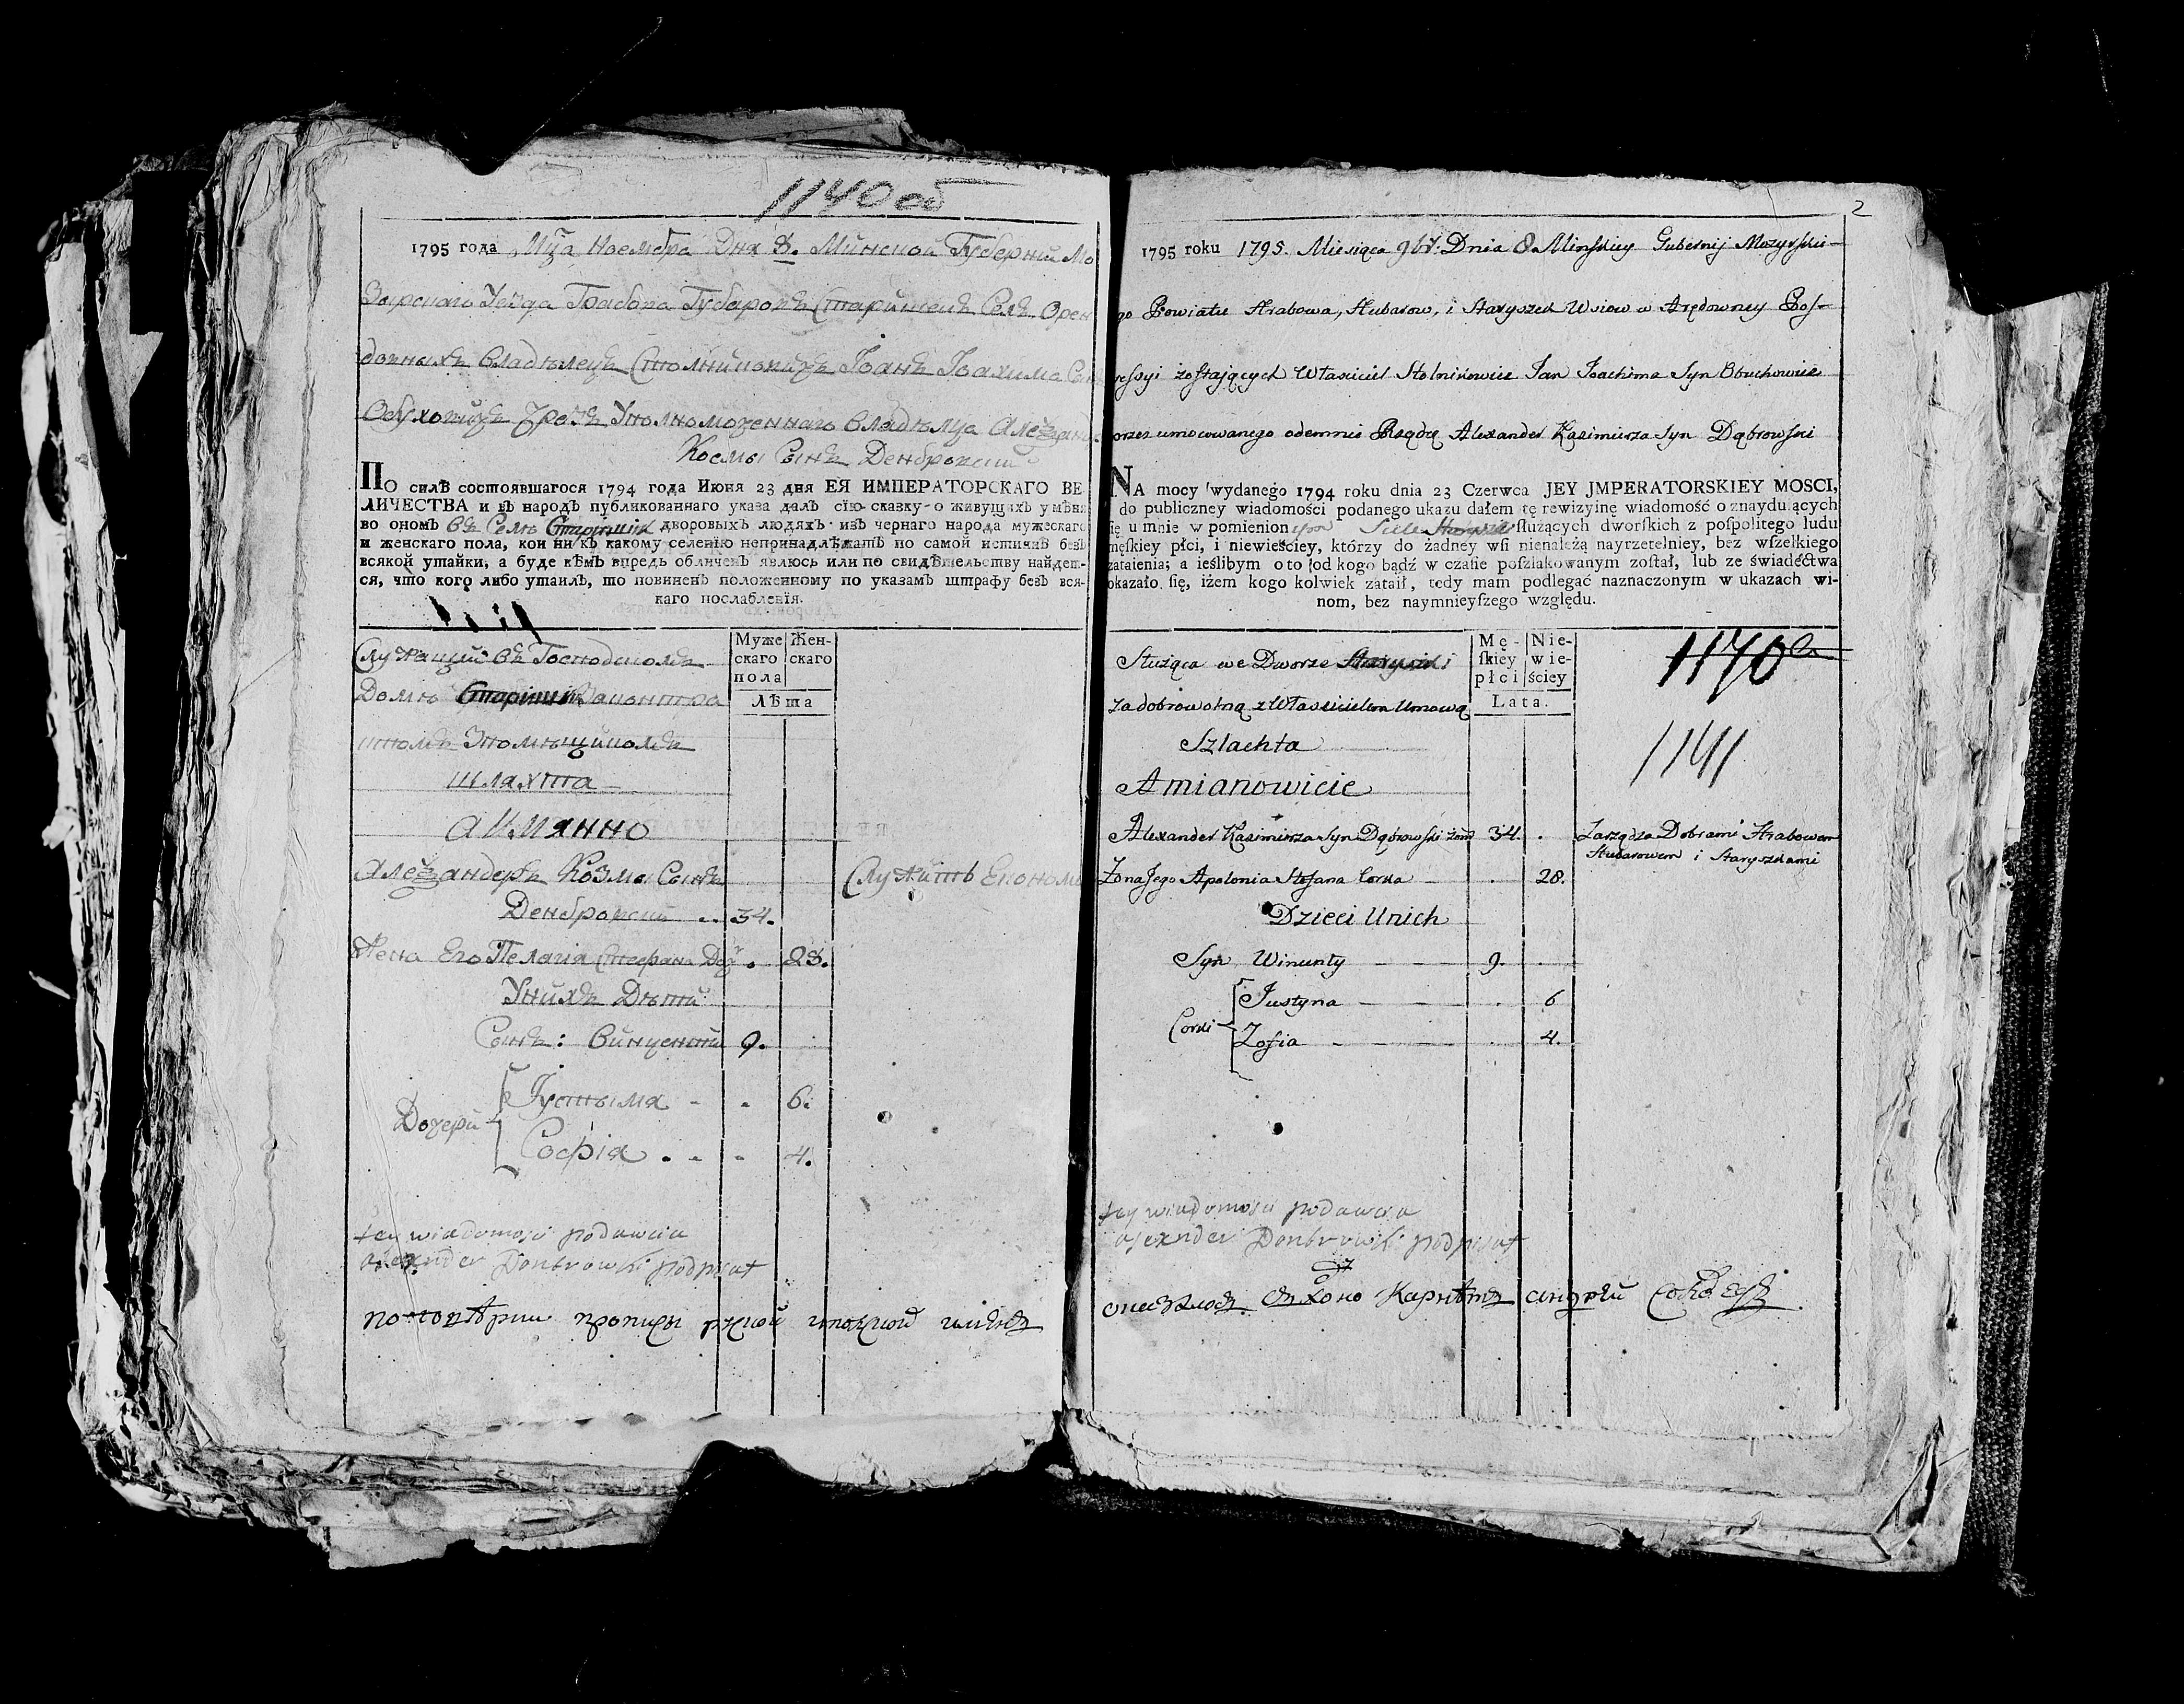 1140 об
1795 года Мца Ноембра Дня 8. Минской Губернии Мо
Зырскаго Уезда Грабова Губаровъ Старишекъ Селъ Орен
довныхъ Владѣлецъ Столниковичъ Іоанъ Іоахима Сынъ
Обуховичъ Чрезъ Уполномоченнаго Владѣлца Алеѯандра
Космы Сынъ Денбровский
ПО силѣ состоявшагося 1794 года Июня 23 дня ЕЯ ИМПЕРАТОРСКАГО ВЕ
ЛИЧЕСТВА и въ народъ публикованнаго указа далъ сїю сказку о живущихъ у меня
во ономъ въ Селѣ дворовыхъ людяхъ изъ чернаго народа мужескаго
и женскаго пола, кои ни къ какому селенїю непринадлѣжатъ по самой истиннѣ безъ
всякой утайки, а буде кѣмъ впредь обличенъ явлюсь или по свидѣтельству найдет-
ся, что кого либо утаилъ, то повиненъ положенному по указамъ штрафу безъ вся-
каго послабленїя.
Служащий въ Господскомъ
Домѣ
Шляхта
Аимянно
Муже
скаго
пола
Жен-
скаго
Лѣта
Алеѯандеръ Козмы Сынъ Служитъ Економ
Денбровский .. 34.
Жена Его Пелагія Стефана Доч . 28.
Унихъ Дѣти
Сынъ: Винценти 9.
Дочери
Іустына - - 6.
Софія . - - 4.
tey wiadomosci podawcia
alexnder Donbrowski podpisał
2
1795 roku 1795. Miesiąca 9br. Dnia 8 Minskiey Gubernij Mozyrskie-
go Powiatu Hrabowa, Hubarow, i Staryszek Wsiow w Arędowney Pos-
sessyi zostających Właściciel Stolnikowicz Jan Joachima Syn Obuchowicz
przez umocowanego odemnie Rządcę Alexander Kazimierza Syn Dąbrowski
NA mocy wydanego 1794 roku dnia 23 Czerwca JEY JMPERATORSKIEY MOSCI,
do publiczney wiadomości podanego ukazu dałem tę rewizyinę wiadomość o znayduiących
się u mnie w pomienionym Siele służących dworſkich z poſpolitego ludu
męſkiey płci, i niewieściey, którzy do żadney wſi nienależą nayrzetelniey, bez wſzelkiego
zataienia; a ieślibym o to od kogo bądź w czaſie poſzlakowanym zoſtał, lub ze świadectwa
okazało ſię, iżem kogo kolwiek zataił, tedy mam podlegać naznaczonym w ukazach wi-
nom, bez naymnieyſzego względu.
Służąca we Dworze
za dobrowolną z Właścicielem Umową
Szlachta
Amianowicie
Mę-
ſkiey
płci
Nie-
wie-
ściey
Lata.
1140 a
1141
Alexander Kazimierza Syn Dąbrowski 34. . Zarządza Dobrami Hrabowem
Hubarowem i Staryszkami
Zona Jego Apolonia Stefana Corka . 28.
Dzieci Unich
Syn Wincenty 9. .
Corki
Justyna . 6
Zofia . 4.
tey wiadomosci podawcia
alexnder Donbrowski podpisał